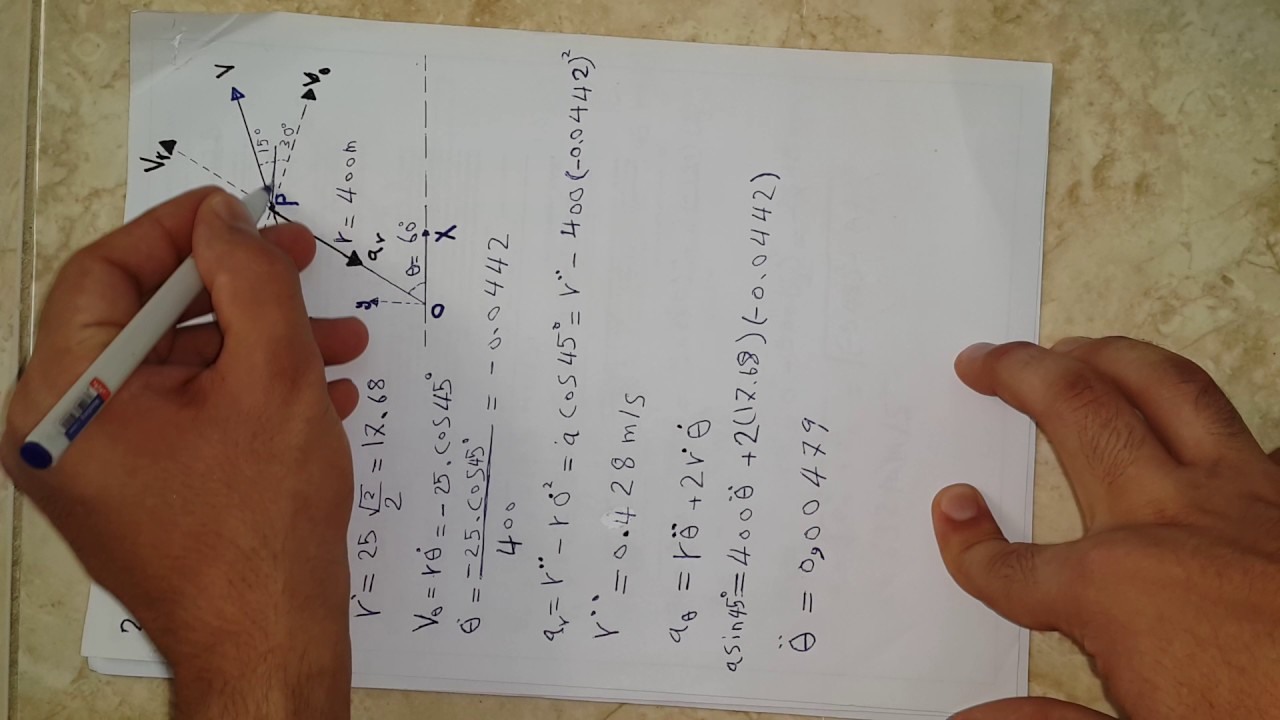 2
Vr
V
Vθ
15°
30°
P
r = 400m
ar
θ = 60°
y
O
X
r˙ = 25 √2/2 = 17.68
Vθ = rθ˙ = -25.cos45°
θ˙ = -25.cos45°/400 = -0.0442
ar = r¨ - rθ˙² = a cos45° = r¨ - 400(-0.0442)²
r¨ = 0.428 m/s
aθ = rθ¨ + 2r˙θ˙
asin45° = 400θ¨ + 2(17.68)(-0.0442)
θ¨ = 0,00479